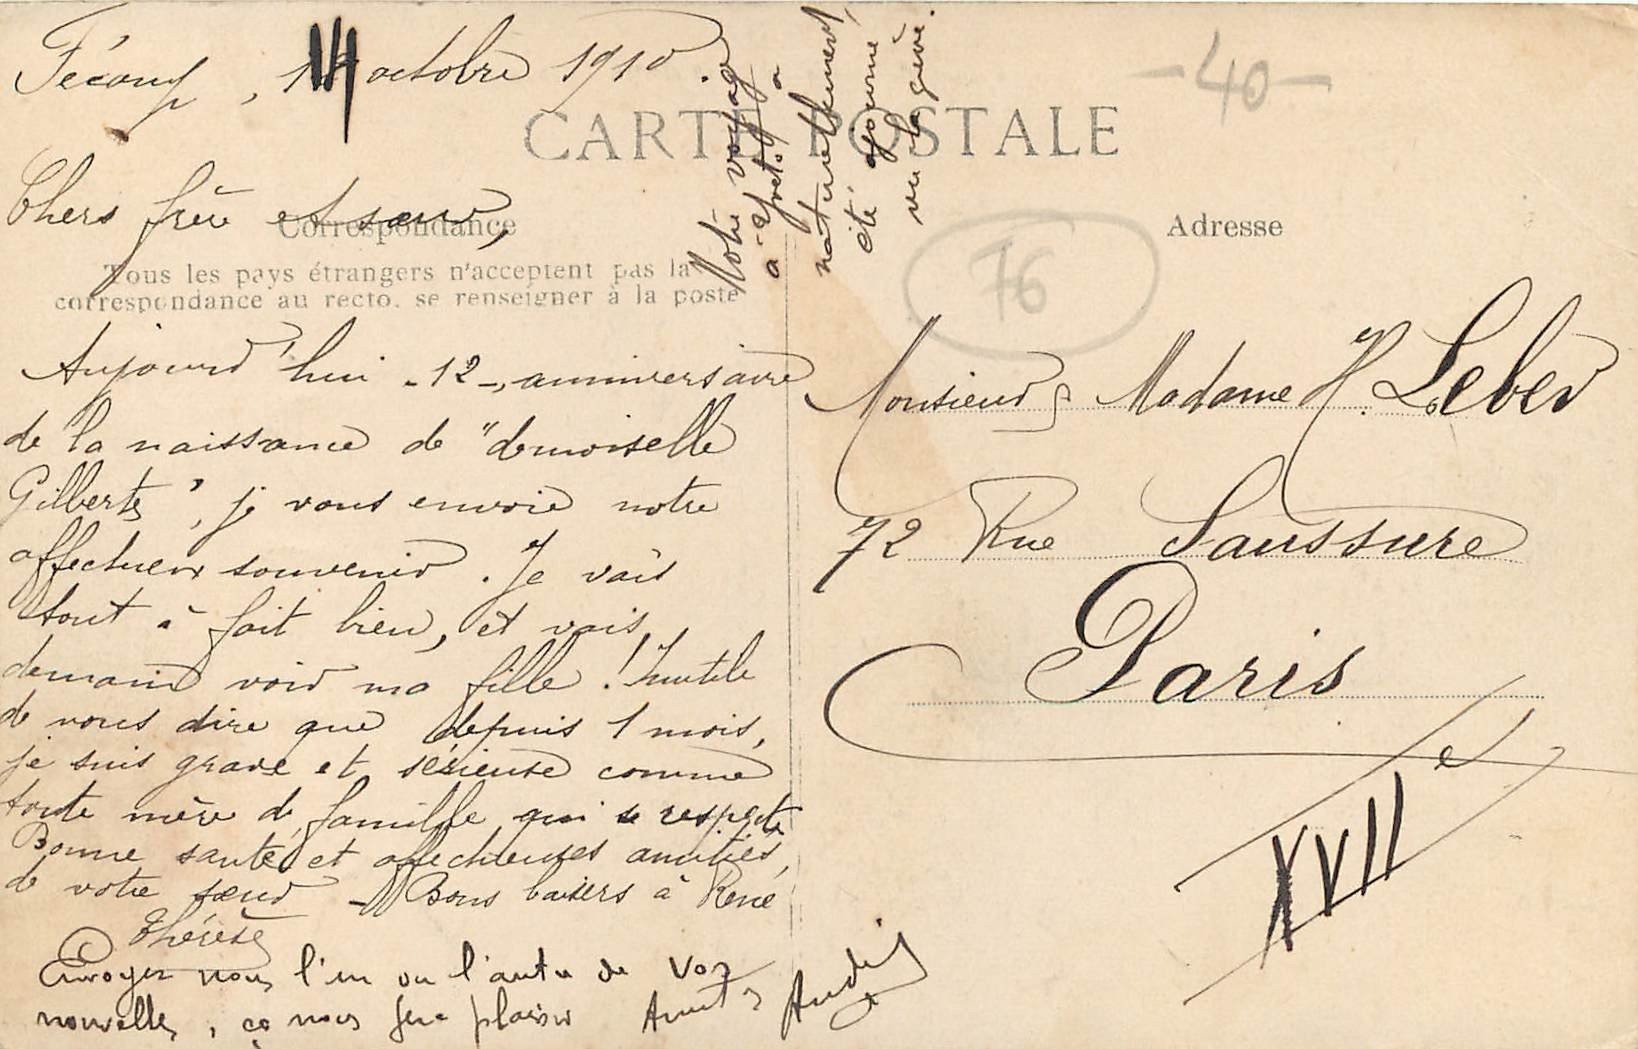 Fécamp, 14 octobre 1910.
CARTE POSTALE
-40-
Chers frère et sœur,
Correspondance
Tous les pays étrangers n'acceptent pas la
correspondance au recto. se renseigner à la poste
Aujourd'hui -12-, anniversaire
de la naissance de "demoiselle
Gilberte", je vous envoie notre
affectueux souvenir. Je vais
tout à fait bien, et vais
demain voir ma fille ! Inutile
de vous dire que depuis 1 mois,
je suis grave et sérieuse comme
toute mère de famille qui se respecte
Bonne santé et affectueuses amitiés,
de votre sœur - Bons baisers à René
Thérèse
Envoyez nous l'un ou l'autre de vos
nouvelles, ça nous fera plaisir Amitiés André
Notre voyage
à Yvetot a
naturellement
été ajourné
vu la grève.
Adresse
76
Monsieur & Madame H. Leber
72 Rue Saussure
Paris
XVII e